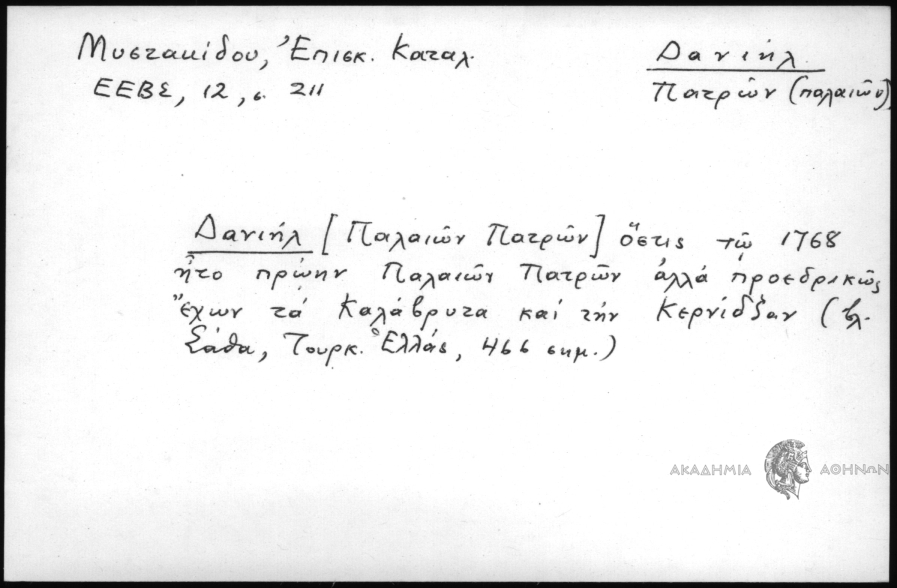 Μυστακίδου, Ἐπισκ. Καταλ.
ΕΕΒΣ, 12, σ. 211
Δανιήλ
Πατρῶν (παλαιῶν)
Δανιήλ [Παλαιῶν Πατρῶν] ὅστις τῷ 1768
ἦτο πρώην Παλαιῶν Πατρῶν ἀλλά προεδρικῶς
ἔχων τά Καλάβρυτα καί τήν Κερνίδζαν (βλ.
Σάθα, Τουρκ. Ἑλλάς, 466 σημ.)
ΑΚΑΔΗΜΙΑ ΑΘΗΝΩΝ